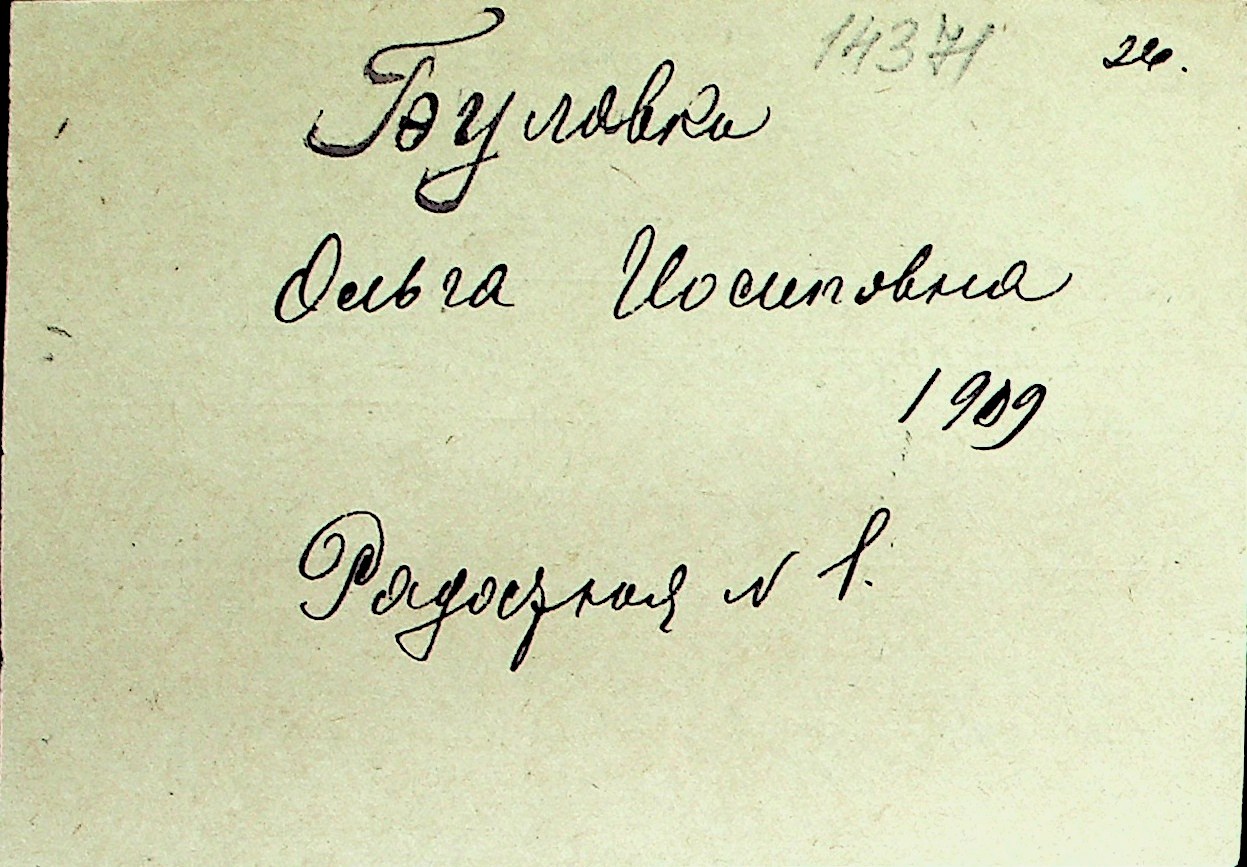 14371 26.
Буловка
Ольга Иосиповна
1909
Радостная N 1.